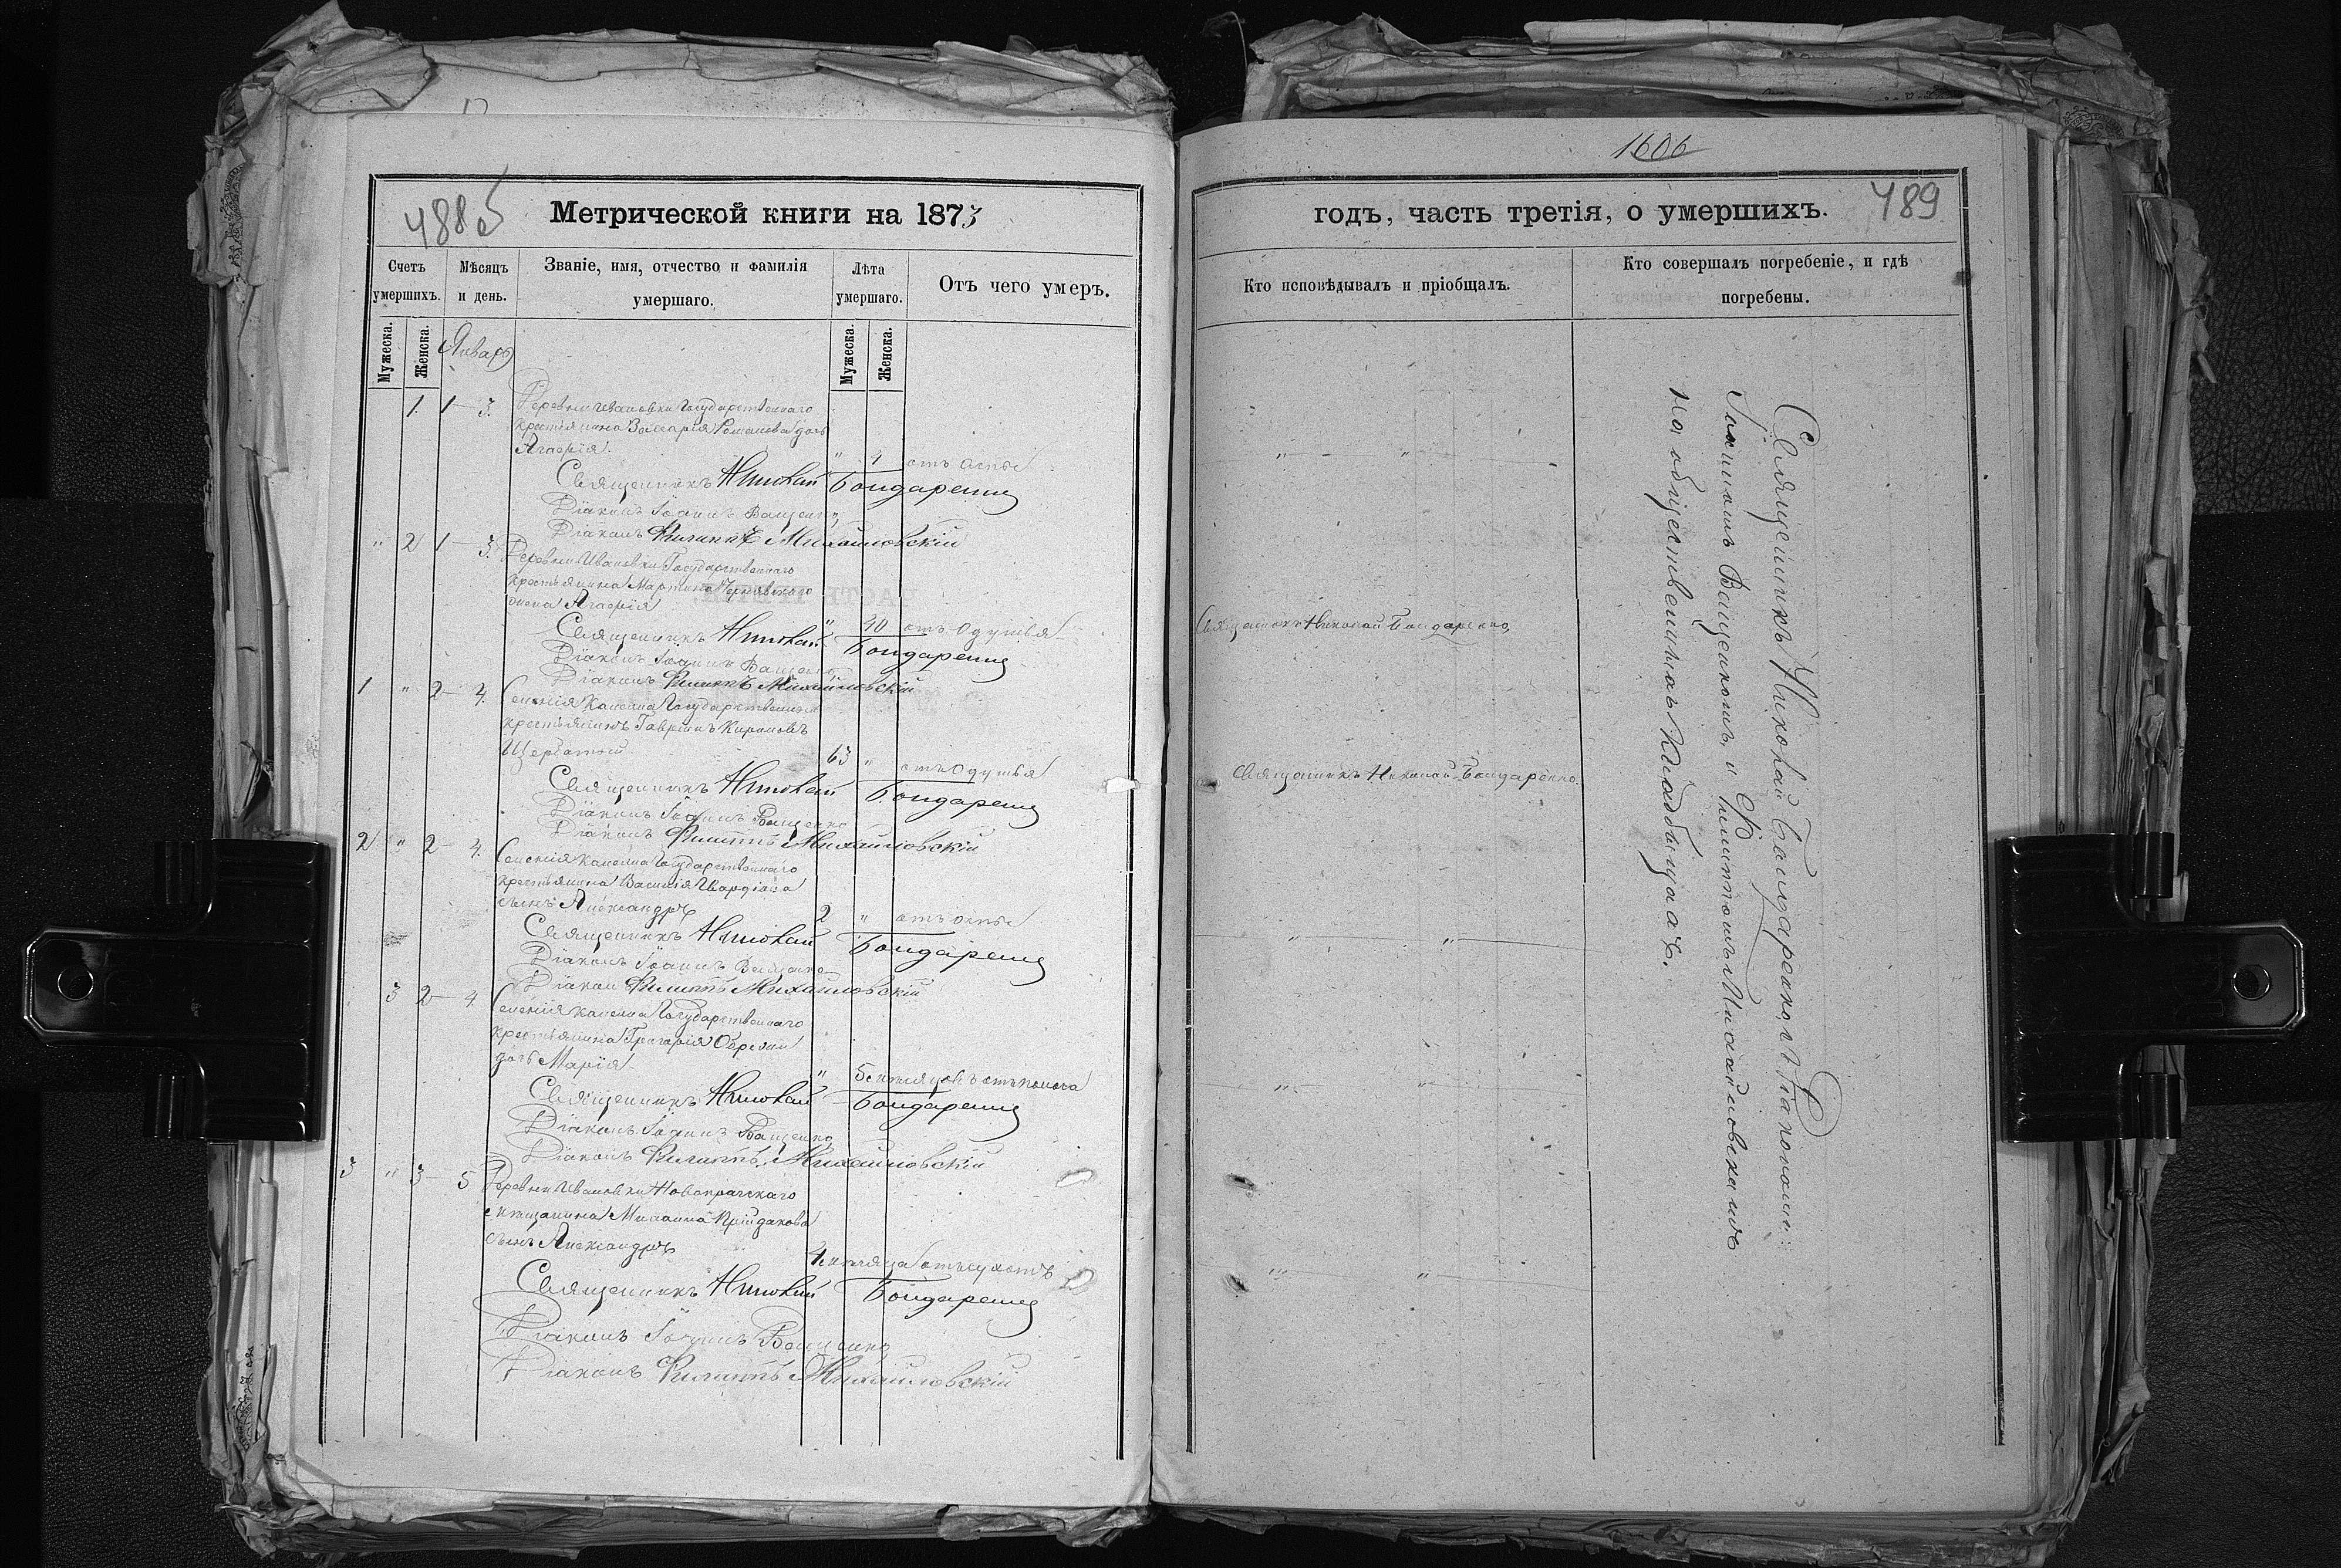 488б
Метрической книги на 1873
Счетъ умершихъ.
Мѣсяцъ и день.
Званіе, имя, отчество и фамилія умершаго.
Лѣта умершаго.
Отъ чего умеръ.
Мужеска.
Женска.
Январь
Мужеска.
Женска.
1. 1 — 3. Деревни Ивановки Государственнаго
крестьянина Захарія Романова дочь
Агафія. " 4 отъ оспы
Священникъ Николай Бондаренко
Діаконъ Іоаннъ Ващенко
Діаконъ Филиппъ Михайловскій
" 2 1 — 3. Деревни Ивановки Государственнаго
крестьянина Мартина Чернявского
жена Агафія " 40 отъ одушья
Священникъ Николай Бондаренко
Діаконъ Іоаннъ Ващенко
Діаконъ Филиппъ Михайловскій
1 " 2 — 4. Селенія Государственный
крестьянинъ Гавріилъ
Щербатый 63 " отъ одушья
Священникъ Николай Бондаренко
Діаконъ Іоаннъ Ващенко
Діаконъ Филиппъ Михайловскій
2 " 2 — 4. Селенія Государственнаго
крестьянина Василія
сынъ Александръ 2 " отъ оспы
Священникъ Николай Бондаренко
Діаконъ Іоаннъ Ващенко
Діаконъ Филиппъ Михайловскій
3 2 — 4. Селенія Государственнаго
крестьянина Григорія
дочь Марія " 5 мѣсяцовъ отъ поноса
Священникъ Николай Бондаренко
Діаконъ Іоаннъ Ващенко
Діаконъ Филиппъ Михайловскій
3 " 3 — 5 Деревни Ивановки
мѣщанина Михаила
сынъ Александръ 4 мѣсяца отъ сухотъ
Священникъ Николай Бондаренко
Діаконъ Іоаннъ Ващенко
Діаконъ Филиппъ Михайловскій
1606
годъ, часть третія, о умершихъ. 489
Кто исповѣдывалъ и пріобщалъ.
Кто совершалъ погребеніе, и гдѣ погребены.
" "
Священикъ Николай Бондаренко,
Священикъ Николай Бондаренко.
" "
" "
" "
Священникъ Николай Бондаренко съ Діаконами:
Іоанномъ Ващенкомъ, и Филиппомъ Михайловскимъ
на общественномъ кладбищѣ.